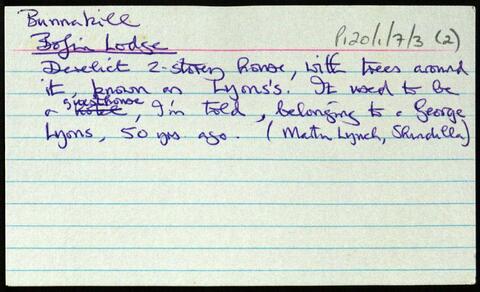 Bunnakill
P120/1/7/3 (2)
Bofin Lodge
Derelict 2-storey house, with trees around
it, known as Lyons's. It used to be
a hotel guesthouse, I'm told, belonging to a George
Lyons, 50 yrs ago. (Matn Lynch, Shindilla)